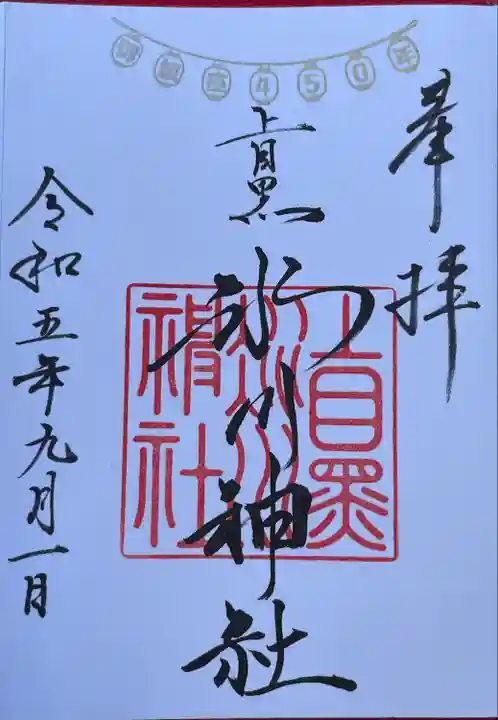 御鎮座450年
奉拝
上目黒
氷川神社
上目黒
氷川
神社
令和五年九月一日